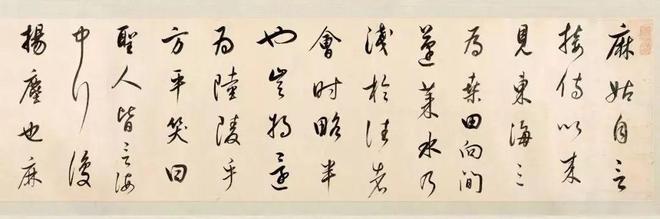 麻姑自言
接侍以来
見東海三
為桑田向間
蓬莱水乃
淺於往者
會時略半
也豈将還
為陸陵乎
方平笑曰
聖人皆言海
中行復
揚塵也麻